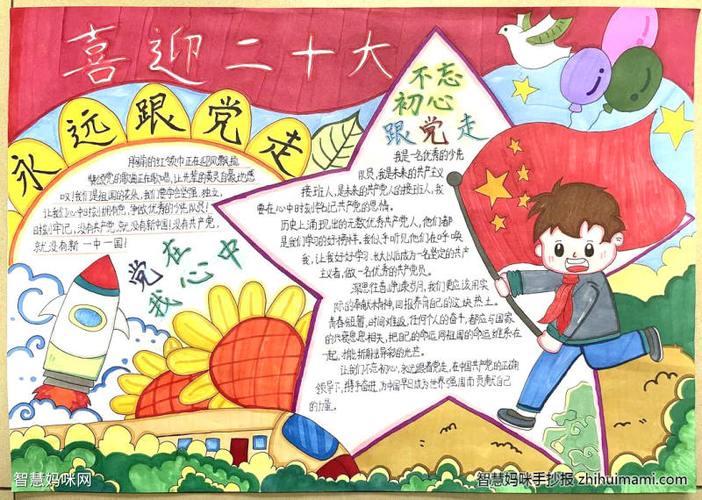 喜迎二十大
永远跟党走
胸前的红领巾正在迎风飘扬
情愫党的歌曲正在歌唱,让先辈的英灵自最地感
叹!我们是祖国的花朵,我们要学会坚强、独立,
让我们心中时刻拥有党,争做优秀的少先队员!
时刻牢记,没有共产党,就没有新中国!没有共产党,
就没有新一中一国!
党在
我心中
不忘
初心
跟党走
我是一名优秀的少先
队员,我是未来的共产主义
接班人,是未来的共产党人的接班人,我
要在心中时刻牢记共产党的恩情。
历史上涌现出的无数优秀共产党人,他们都
是我们学习的好榜样。我似乎听见他们在呼唤
我,让我好好学习,长大以后成为一名坚定的共产主
义者,做一名优秀的共产党员。
深思往昔,争求引,我们更应该用实
际的奉献求精神,回报养育自己的这块热土。
青春短暂,时间难返,任何个人的奋斗,都应与国家
的兴衰息息相关,把自己的命运同祖国的命运维系在
一起,才能折射出异彩的光芒。
让我们不忘初心,永远跟着党走,在中国共产党的正确
领导下,携手奋进,为中国早日成为世界强国而贡献自己
的力量。
智慧妈咪网
智慧妈咪手抄报 zhihuimami.com